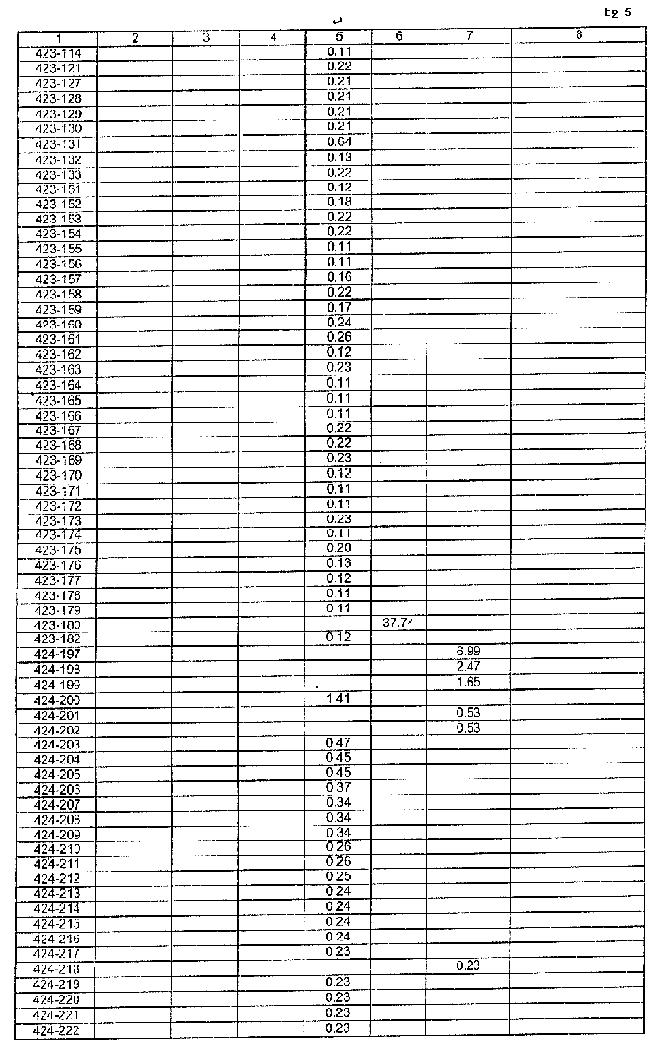 Eg 5
1 2 3 4 5 6 7 8
423-114 0.11
423-121 0.22
423-127 0.21
423-128 0.21
423-129 0.21
423-130 0.21
423-131 0.64
423-132 0.13
423-133 0.22
423-151 0.12
423-152 0.18
423-153 0.22
423-154 0.22
423-155 0.11
423-156 0.11
423-157 0.16
423-158 0.22
423-159 0.17
423-160 0.24
423-161 0.26
423-162 0.12
423-163 0.23
423-164 0.11
423-165 0.11
423-166 0.11
423-167 0.22
423-168 0.22
423-169 0.23
423-170 0.12
423-171 0.11
423-172 0.11
423-173 0.23
423-174 0.11
423-175 0.20
423-176 0.13
423-177 0.12
423-178 0.11
423-179 0.11
423-180
423-182 0.12
424-197 6.99
424-198 2.47
424-199 1.65
424-200 1.41
424-201 0.53
424-202 0.53
424-203 0.47
424-204 0.45
424-205 0.45
424-206 0.37
424-207 0.34
424-208 0.34
424-209 0.34
424-210 0.26
424-211 0.26
424-212 0.25
424-213 0.24
424-214 0.24
424-215 0.24
424-216 0.24
424-217 0.23
424-218 0.23
424-219 0.23
424-220 0.23
424-221 0.23
424-222 0.23